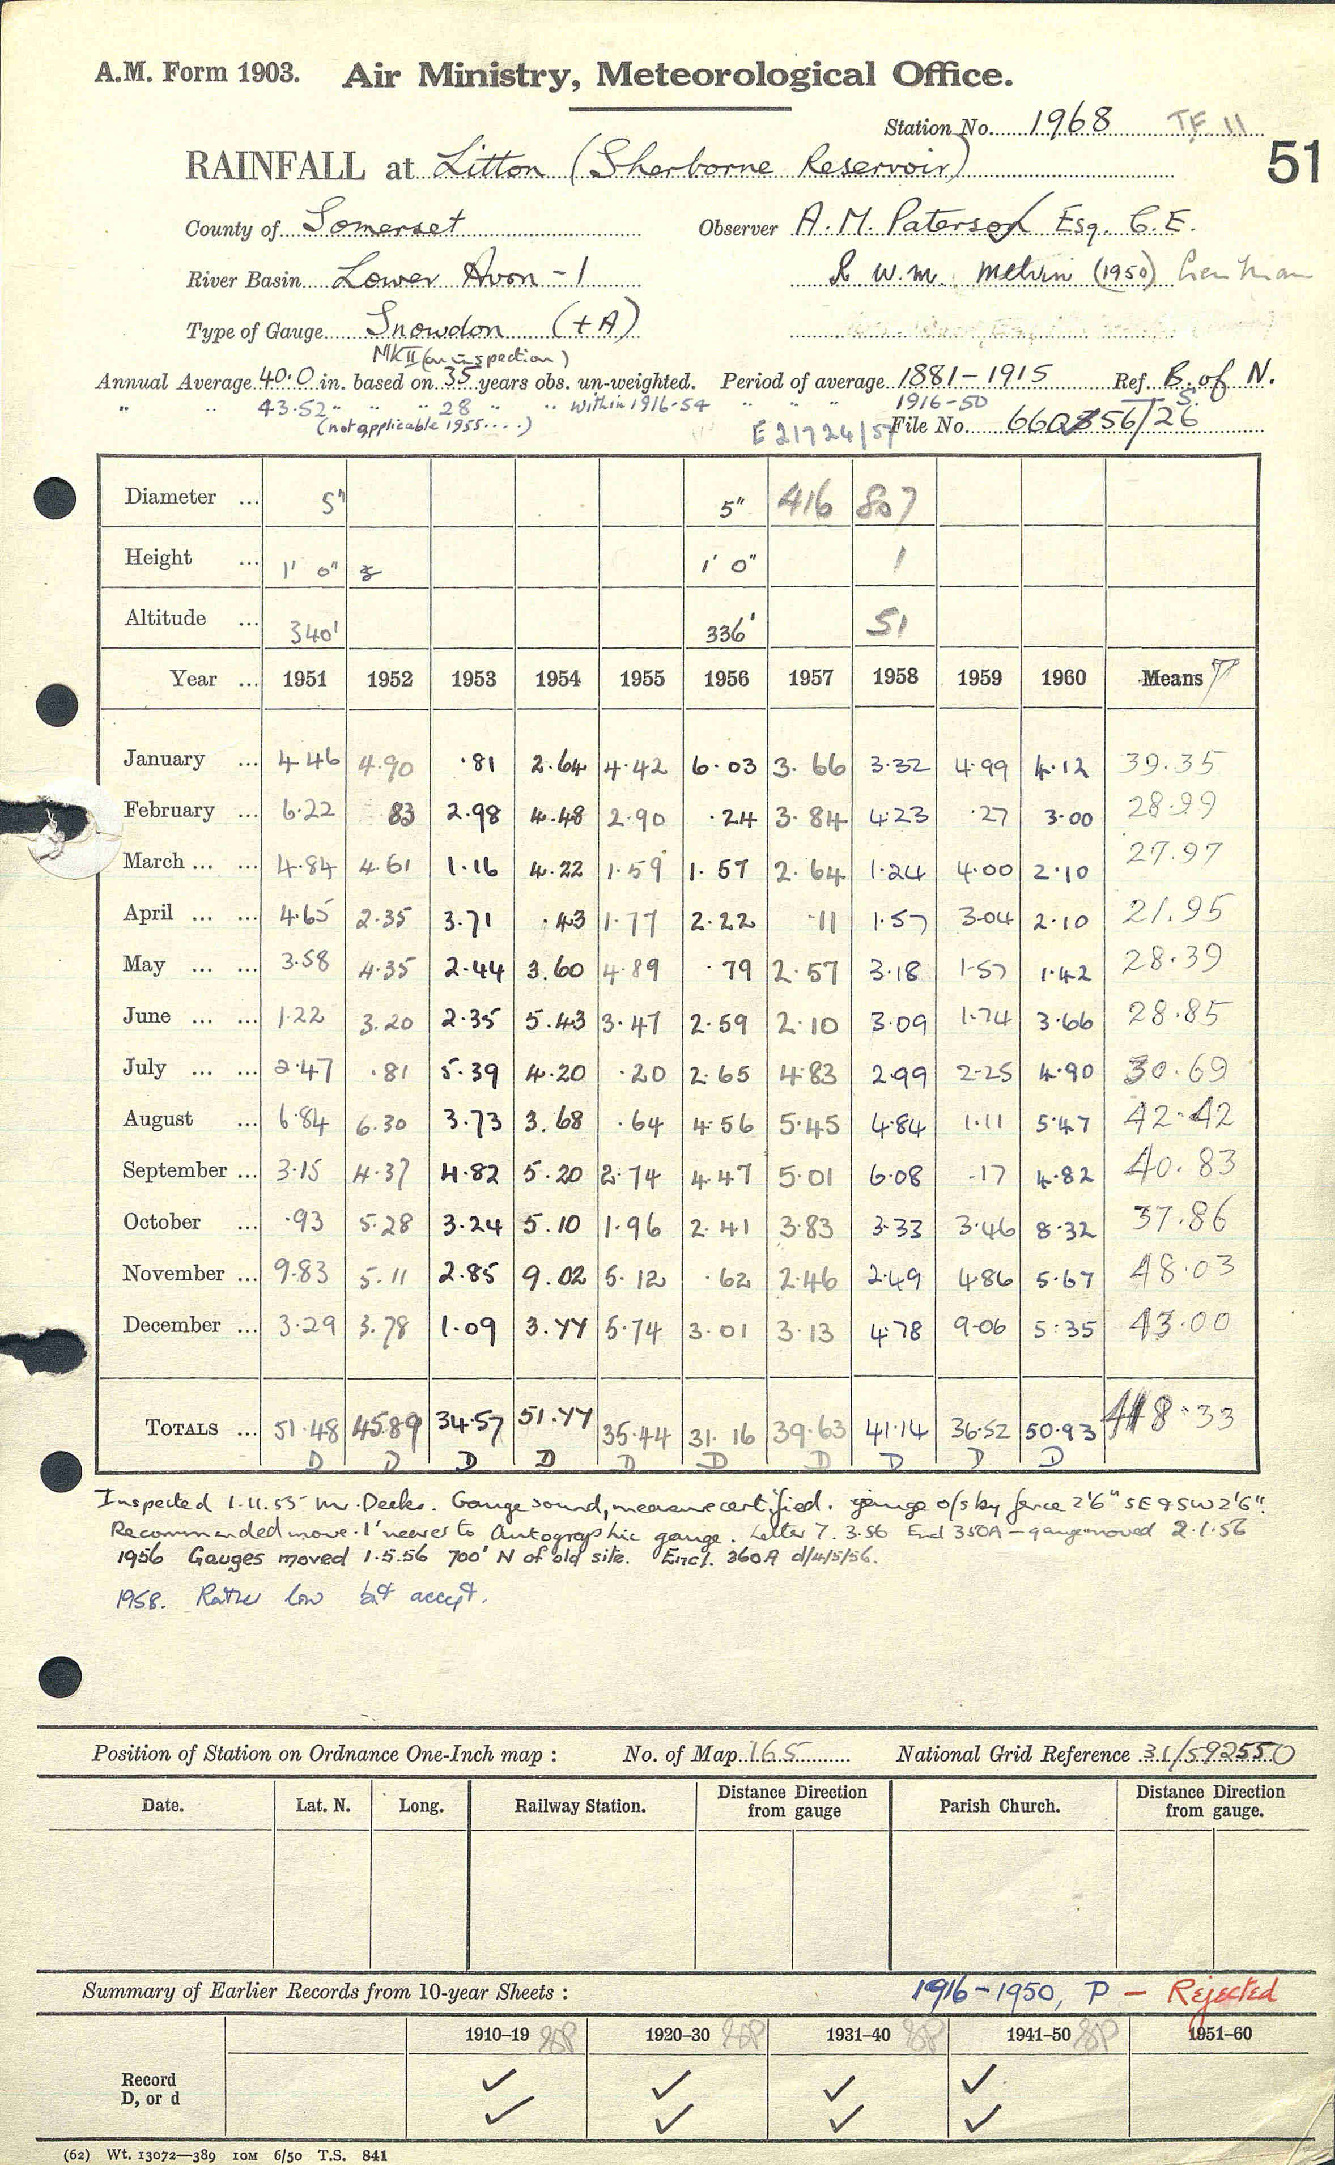 A.M. Form 1903. Air Ministry, Meteorological Office.
Station No. 1968 TF 11
51
RAINFALL at Litton (Sherborne Reservoir)
County of Somerset Observer A. M. Paterson Esq. C.E.
River Basin Lower Avon - 1 R W. M. Melvin (1950)
Type of Gauge Snowdon (+A)
MK II (on inspection)
Annual Average 40.0 in. based on 35 years obs. un-weighted. Period of average 1881-1915 Ref. B. of N.
" " 43.52 " " 28 " " within 1916-54 " " " 1916-50 S.
(not applicable 1955....) E 21724/57 File No. 660856/T26
Diameter ... 5" 5" 416 807
Height ... 1' 0" 1' 0" 1
Altitude ... 340' 336' 51
Year ... 1951 1952 1953 1954 1955 1956 1957 1958 1959 1960 Means T
January ... 4.46 4.90 .81 2.64 4.42 6.03 3.66 3.32 4.99 4.12 39.35
February ... 6.22 83 2.98 4.48 2.90 .24 3.84 4.23 .27 3.00 28.99
March ... ... 4.84 4.61 1.16 4.22 1.59 1.57 2.64 1.24 4.00 2.10 27.97
April ... ... 4.65 2.35 3.71 .43 1.77 2.22 .11 1.57 3.04 2.10 21.95
May ... ... 3.58 4.35 2.44 3.60 4.89 .79 2.57 3.18 1.57 1.42 28.39
June ... ... 1.22 3.20 2.35 5.43 3.47 2.59 2.10 3.09 1.74 3.66 28.85
July ... ... 2.47 .81 5.39 4.20 .20 2.65 4.83 2.99 2.25 4.90 30.69
August ... 6.84 6.30 3.73 3.68 .64 4.56 5.45 4.84 1.11 5.47 42.42
September ... 3.15 4.37 4.82 5.20 2.74 4.47 5.01 6.08 .17 4.82 40.83
October ... .93 5.28 3.24 5.10 1.96 2.41 3.83 3.33 3.46 8.32 37.86
November ... 9.83 5.11 2.85 9.02 5.12 .62 2.46 2.49 4.86 5.67 48.03
December ... 3.29 3.78 1.09 3.44 5.74 3.01 3.13 4.78 9.06 5.35 43.00
TOTALS ... 51.48 45.89 34.57 51.44 35.44 31.16 39.63 41.14 36.52 50.93 418.33
D D D D D D D D D D
Inspected 1.11.55 Mr. Deeks. Gauge sound, measure certified. gauge o/s by fence 2'6" SE & SW 2'6".
Recommended move 1' nearer to Autographic gauge. Letter 7.3.56 Encl 350A - gauge moved 2.1.56
1956 Gauges moved 1.5.56 700' N of old site. Encl. 360A d/4/5/56.
1958. Rather low but accept.
Position of Station on Ordnance One-Inch map : No. of Map 165 National Grid Reference 31/592550
Date. Lat. N. Long. Railway Station. Distance Direction from gauge Parish Church. Distance Direction from gauge.
Summary of Earlier Records from 10-year Sheets : 1916-1950, P - Rejected
1910-19 1920-30 1931-40 1941-50 1951-60
Record ✓ ✓ ✓ ✓
D, or d ✓ ✓ ✓ ✓
(62) Wt. 13072—389 10M 6/50 T.S. 841